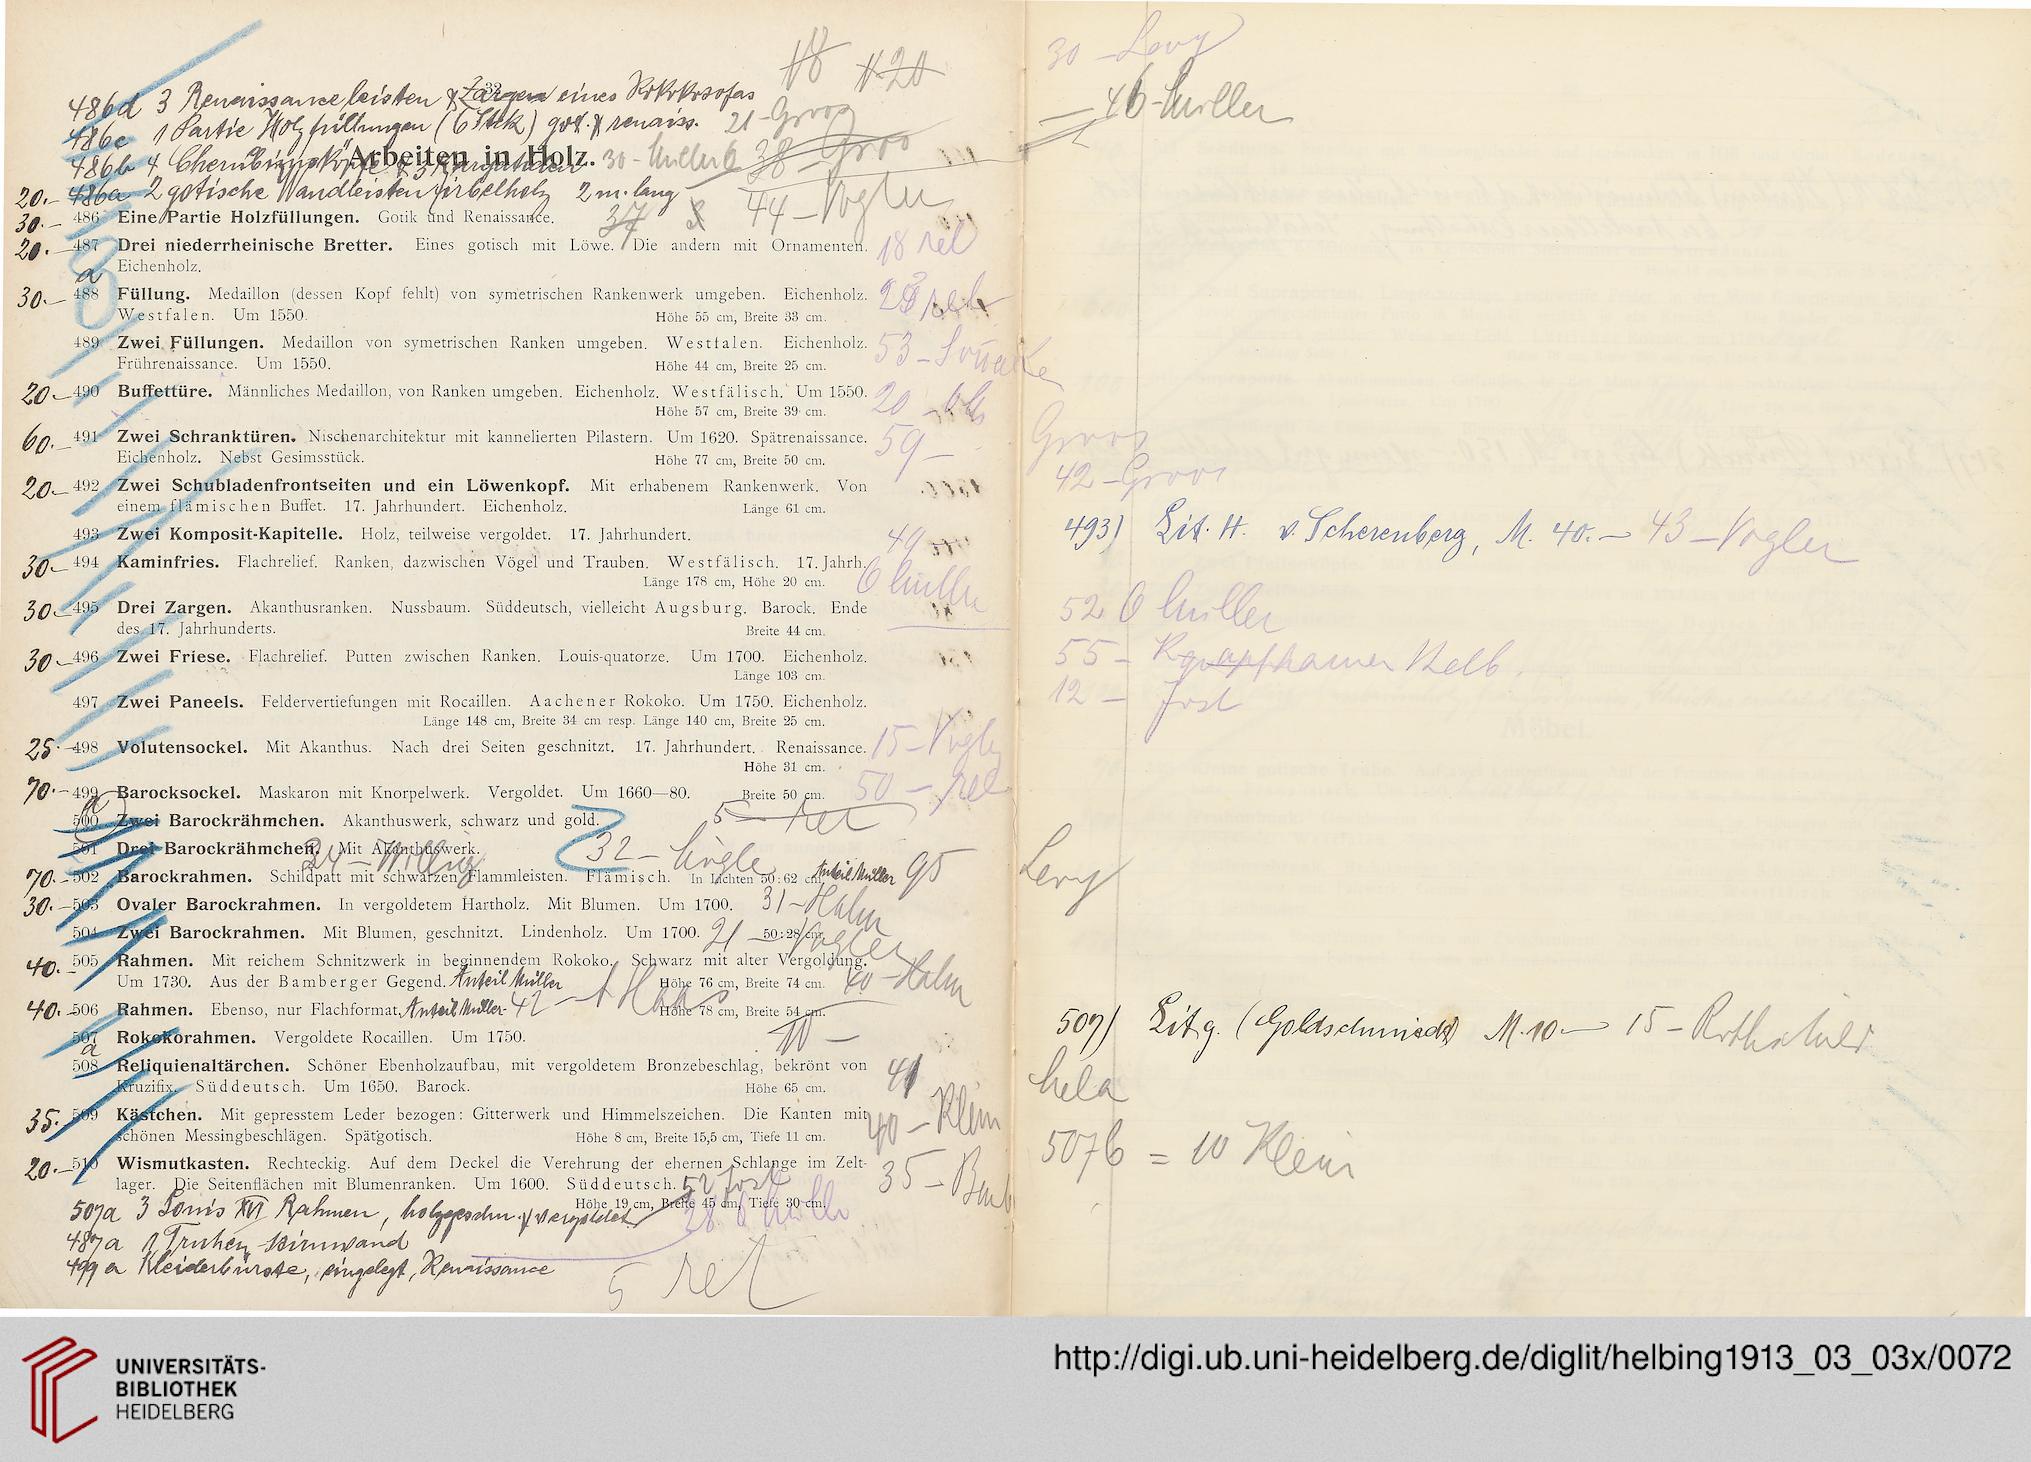 18 20
486d 3 Renaissanceleisten & Zargen eines Rokokosofas
32
486c 1 Partie Holzfüllungen (6 Stck) got. & renaiss. 21 - Groos
486b 4 Cherubimsköpfe & 3
Arbeiten in Holz. 30 - Müller 38 - Groos
20.- 486a 2 gotische Wandleisten Zirbelholz 2 m. lang 44 - Vogler
30.- 486 Eine Partie Holzfüllungen. Gotik und Renaissance. 37
20.- 487 Drei niederrheinische Bretter. Eines gotisch mit Löwe. Die andern mit Ornamenten. 18 ret
Eichenholz.
a
30.- 488 Füllung. Medaillon (dessen Kopf fehlt) von symetrischen Rankenwerk umgeben. Eichenholz. 28 ret
Westfalen. Um 1550. Höhe 55 cm, Breite 33 cm.
489 Zwei Füllungen. Medaillon von symetrischen Ranken umgeben. Westfalen. Eichenholz. 53 -
Frührenaissance. Um 1550. Höhe 44 cm, Breite 25 cm.
20.- 490 Buffettüre. Männliches Medaillon, von Ranken umgeben. Eichenholz. Westfälisch. Um 1550. 20 -
Höhe 57 cm, Breite 39 cm.
60.- 491 Zwei Schranktüren. Nischenarchitektur mit kannelierten Pilastern. Um 1620. Spätrenaissance. 59 -
Eichenholz. Nebst Gesimsstück. Höhe 77 cm, Breite 50 cm.
20.- 492 Zwei Schubladenfrontseiten und ein Löwenkopf. Mit erhabenem Rankenwerk. Von
einem flämischen Buffet. 17. Jahrhundert. Eichenholz. Länge 61 cm.
493 Zwei Komposit-Kapitelle. Holz, teilweise vergoldet. 17. Jahrhundert. 49
30.- 494 Kaminfries. Flachrelief. Ranken, dazwischen Vögel und Trauben. Westfälisch. 17. Jahrh. Müller
Länge 178 cm, Höhe 20 cm.
30.- 495 Drei Zargen. Akanthusranken. Nussbaum. Süddeutsch, vielleicht Augsburg. Barock. Ende
des 17. Jahrhunderts. Breite 44 cm.
30.- 496 Zwei Friese. Flachrelief. Putten zwischen Ranken. Louis-quatorze. Um 1700. Eichenholz.
Länge 103 cm.
497 Zwei Paneels. Feldervertiefungen mit Rocaillen. Aachener Rokoko. Um 1750. Eichenholz.
Länge 148 cm, Breite 34 cm resp. Länge 140 cm, Breite 25 cm.
25.- 498 Volutensockel. Mit Akanthus. Nach drei Seiten geschnitzt. 17. Jahrhundert. Renaissance. 15 - Vogler
Höhe 31 cm.
70.- 499 Barocksockel. Maskaron mit Knorpelwerk. Vergoldet. Um 1660—80. Breite 50 cm. 50 - ret
a
500 Zwei Barockrähmchen. Akanthuswerk, schwarz und gold. 5 - ret
501 Drei Barockrähmchen. Mit Akanthuswerk. 24 - Willig 32 -
70.- 502 Barockrahmen. Schildpatt mit schwarzen Flammleisten. Flämisch. In Lichten 50:62 cm. Anteil Müller 95
30.- 503 Ovaler Barockrahmen. In vergoldetem Hartholz. Mit Blumen. Um 1700. 31 - Halm
504 Zwei Barockrahmen. Mit Blumen, geschnitzt. Lindenholz. Um 1700. 50:28 cm. 21 - Vogler
40.- 505 Rahmen. Mit reichem Schnitzwerk in beginnendem Rokoko. Schwarz mit alter Vergoldung.
Um 1730. Aus der Bamberger Gegend. Anteil Müller Höhe 76 cm, Breite 74 cm. 40 - Halm
40.- 506 Rahmen. Ebenso, nur Flachformat. Anteil Müller 42 - A Haas Höhe 78 cm, Breite 54 cm.
507 Rokokorahmen. Vergoldete Rocaillen. Um 1750. 10 -
a
508 Reliquienaltärchen. Schöner Ebenholzaufbau, mit vergoldetem Bronzebeschlag, bekrönt von 41
Kruzifix. Süddeutsch. Um 1650. Barock. Höhe 65 cm.
35.- 509 Kästchen. Mit gepresstem Leder bezogen: Gitterwerk und Himmelszeichen. Die Kanten mit 40 - Klein
schönen Messingbeschlägen. Spätgotisch. Höhe 8 cm, Breite 15,5 cm, Tiefe 11 cm.
20.- 510 Wismutkasten. Rechteckig. Auf dem Deckel die Verehrung der ehernen Schlange im Zelt- 35 -
lager. Die Seitenflächen mit Blumenranken. Um 1600. Süddeutsch. 52 Jost
Höhe 19 cm, Breite 45 cm, Tiefe 30 cm.
507a 3 Louis XVI Rahmen, holzgeschn. & vergoldet 28
487a 1 Truhenstirnwand
499a Kleiderbürste, eingelegt, Renaissance
5 ret
30 - Levy
46 - Müller
Groos
42 - Groos
493) Lit. H. v. Scherenberg, M. 40.- 43 - Vogler
52 Müller
55 - Kelb.
12 - Jost
Levy
507) Lit g. (Goldschmidt) M. 10.- 15 - Rothschild
Hela
507b = 10 Klein
UNIVERSITÄTS-
BIBLIOTHEK
HEIDELBERG
http://digi.ub.uni-heidelberg.de/diglit/helbing1913_03_03x/0072